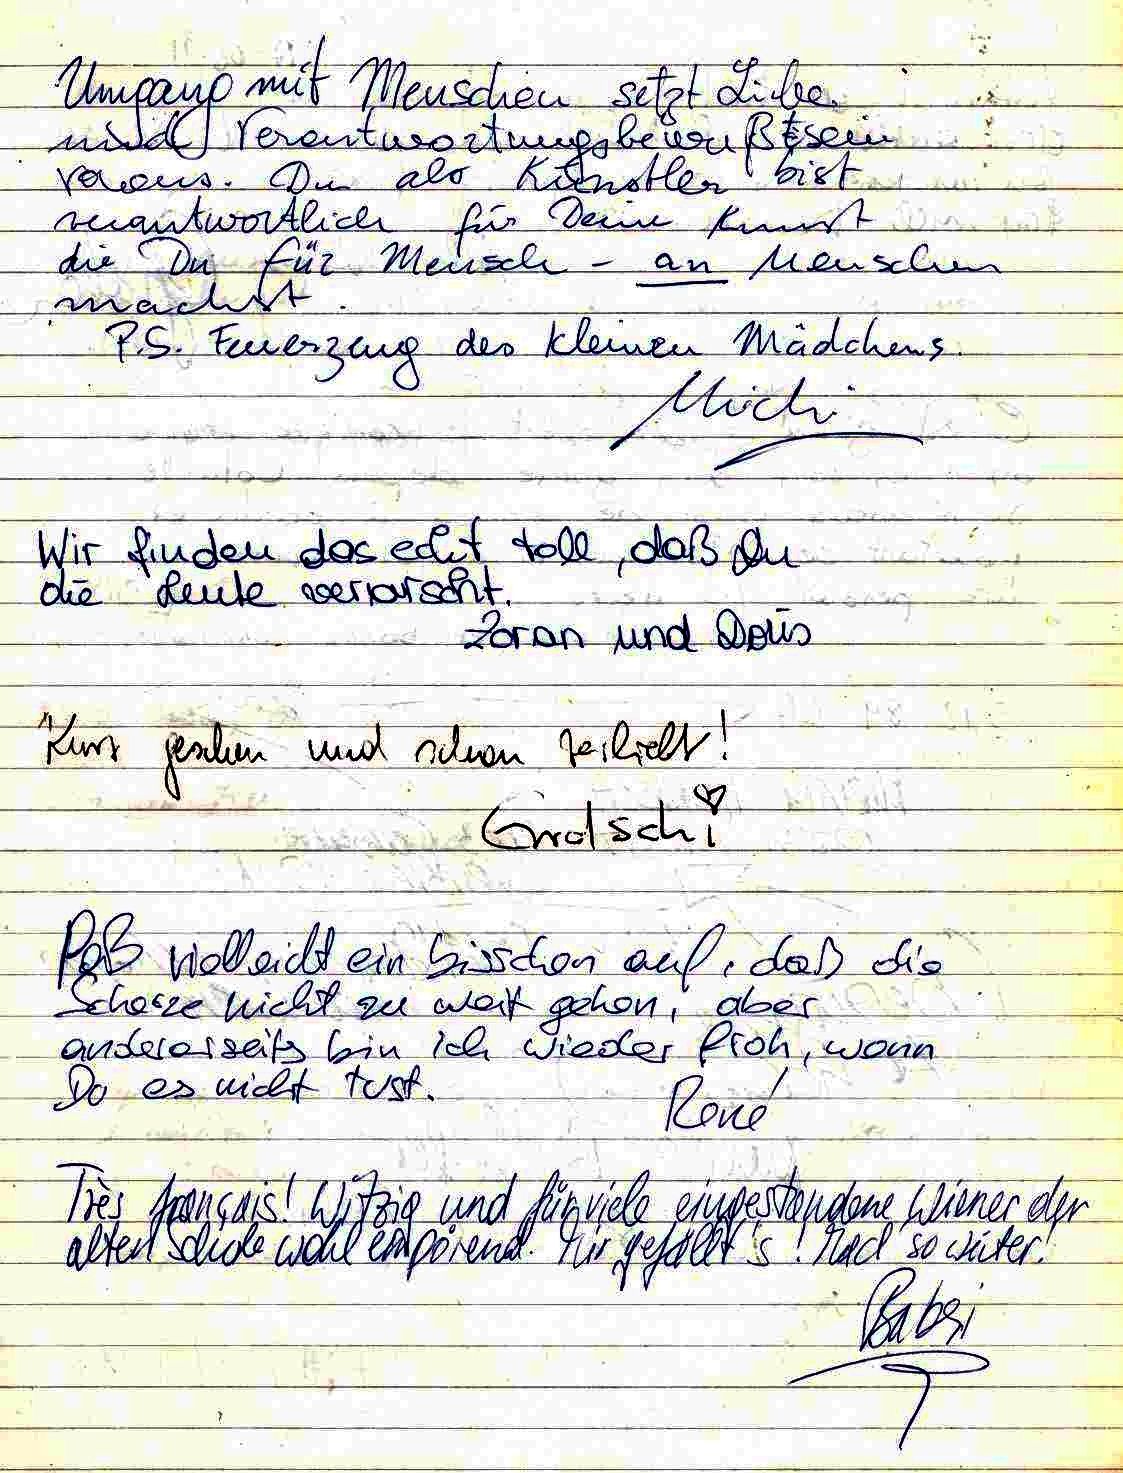 Umgang mit Menschen setzt Liebe
und Verantwortungsbewußtsein
voraus. Du als Künstler bist
verantwortlich für Deine Kunst
die Du für Mensch - an Menschen
machst.
P.S. Feuerzeug des kleinen Mädchens.
Michi
Wir finden das echt toll, daß Du
die Leute verarscht.
Zoran und Doris
"Kurz gesehen und schon verliebt!
Paß vielleicht ein bisschen auf, daß die
Scherze nicht zu weit gehen, aber
andererseits bin ich wieder froh, wenn
Du es nicht tust.
René
Très français! Witzig und für viele eingestandene Wiener der
alten Schule wohl empörend. Mir gefällt's! Mach so weiter!
Babsi